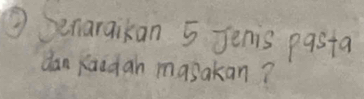 ② Senaraikan 5 Jenis pasta
dan Kaedah masakan?